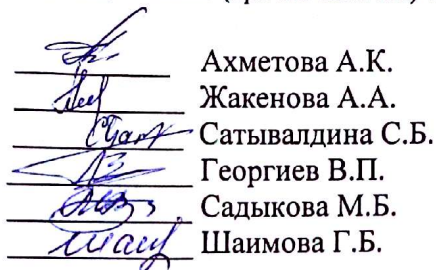 Ахметова А.К.
Жакенова А.А.
Сатывалдина С.Б.
Георгиев В.П.
Садыкова М.Б.
Шаимова Г.Б.